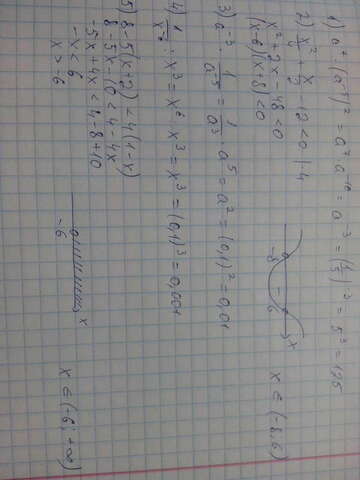 1) a⁷·(a⁻⁵)² = a⁷a⁻¹⁰ = a⁻³ = (1/5)⁻³ = 5³ = 125
2) x²/4 + x/2 - 12 < 0 |·4
x² + 2x - 48 < 0
(x-6)(x+8) < 0
-8 - 6 x
x ∈ (-8; 6)
3) a⁻³ · 1/a⁻⁵ = 1/a³ · a⁵ = a² = (0,1)² = 0,01
4) 1/x⁻⁶ : x³ = x⁶ : x³ = x³ = (0,1)³ = 0,001
5) 8-5(x+2) < 4(1-x)
8-5x-10 < 4-4x
-5x+4x < 4-8+10
-x < 6
x > -6
-6 x
x ∈ (-6; +∞)